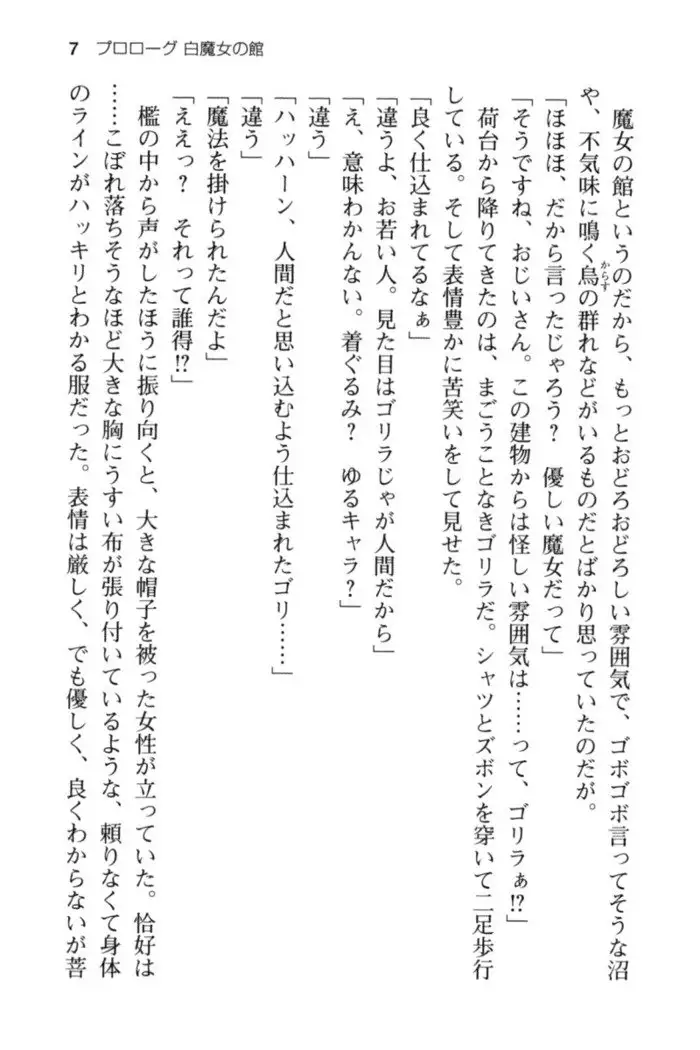 7 プロローグ 白魔女の館
魔女の館というのだから、もっとおどろおどろしい雰囲気で、ゴボゴボ言ってそうな沼
や、不気味に鳴く烏の群れなどがいるものだとばかり思っていたのだが。
からす
「ほほほ、だから言ったじゃろう？　優しい魔女だって」
「そうですね、おじいさん。この建物からは怪しい雰囲気は……って、ゴリラぁ!?」
荷台から降りてきたのは、まごうことなきゴリラだ。シャツとズボンを穿いて二足歩行
している。そして表情豊かに苦笑いをして見せた。
「良く仕込まれてるなぁ」
「違うよ、お若い人。見た目はゴリラじゃが人間だから」
「え、意味わかんない。着ぐるみ？　ゆるキャラ？」
「違う」
「ハッハーン、人間だと思い込むよう仕込まれたゴリ……」
「違う」
「魔法を掛けられたんだよ」
「ええっ？　それって誰得!?」
檻の中から声がしたほうに振り向くと、大きな帽子を被った女性が立っていた。恰好は
……こぼれ落ちそうなほど大きな胸にうすい布が張り付いているような、頼りなくて身体
のラインがハッキリとわかる服だった。表情は厳しく、でも優しく、良くわからないが菩